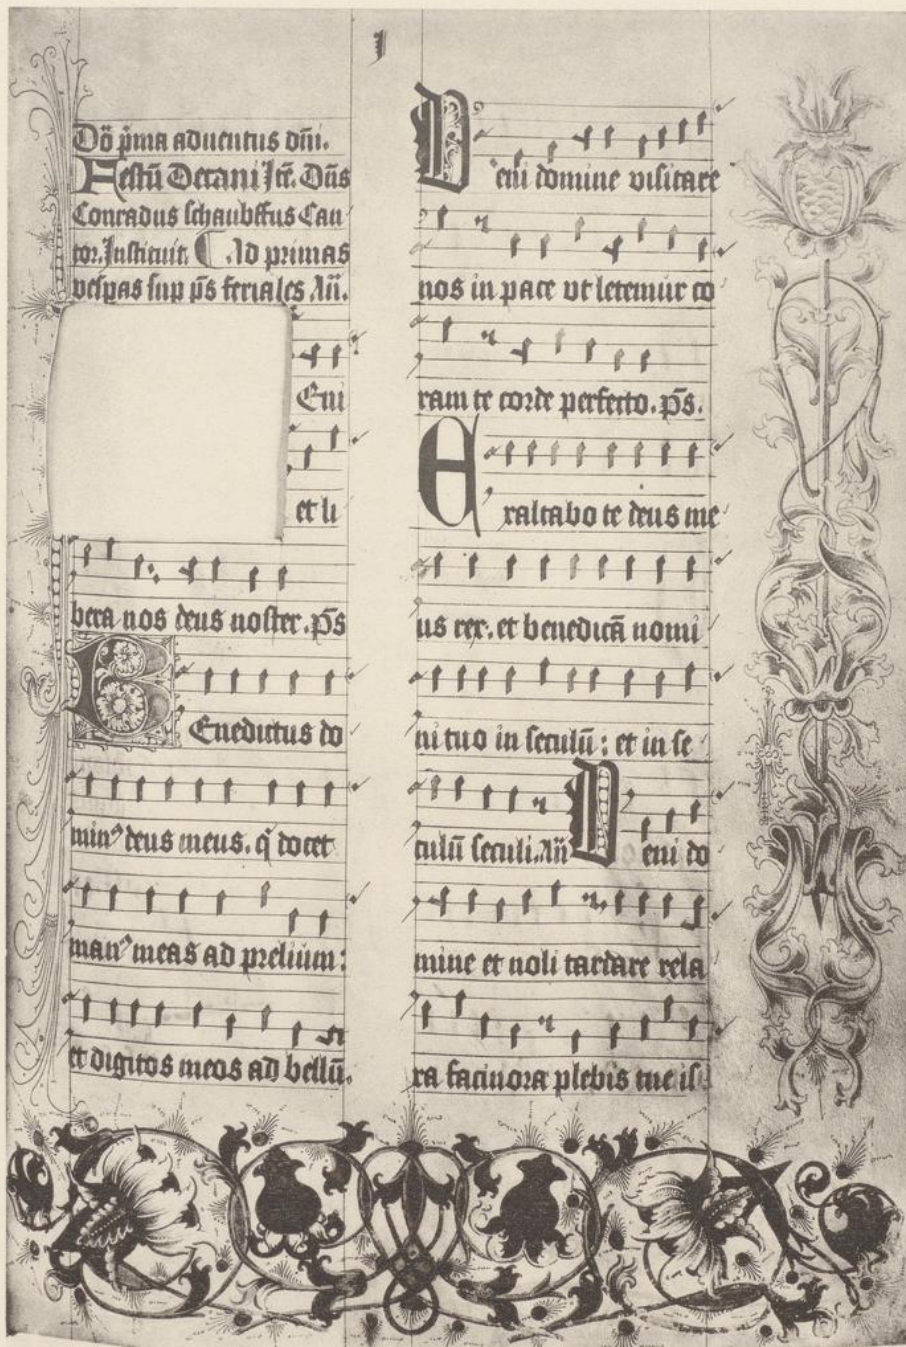 j
Dō p̄ma aduentus dn̄i.
Festū Decani Itē. Dn̄s
Conradus schaubffus Can
tor. Instituit. ¶ Ad primas
vesp̄as sup p̄s feriales An̄.
Eni
et li
bera nos deus noster. p̄s
BEnedictus do
minꝰ deus meus. q̄ docet
manꝰ meas ad prelium:
et digitos meos ad bellū.
Veni domine visitare
nos in pace vt letemur co
ram te corde perfecto. p̄s.
Exaltabo te deus me
us rex. et benedicā nomi
ni tuo in seculū: et in se
culū seculi. An̄ Veni do
mine et noli tardare rela
xa facinora plebis tue is